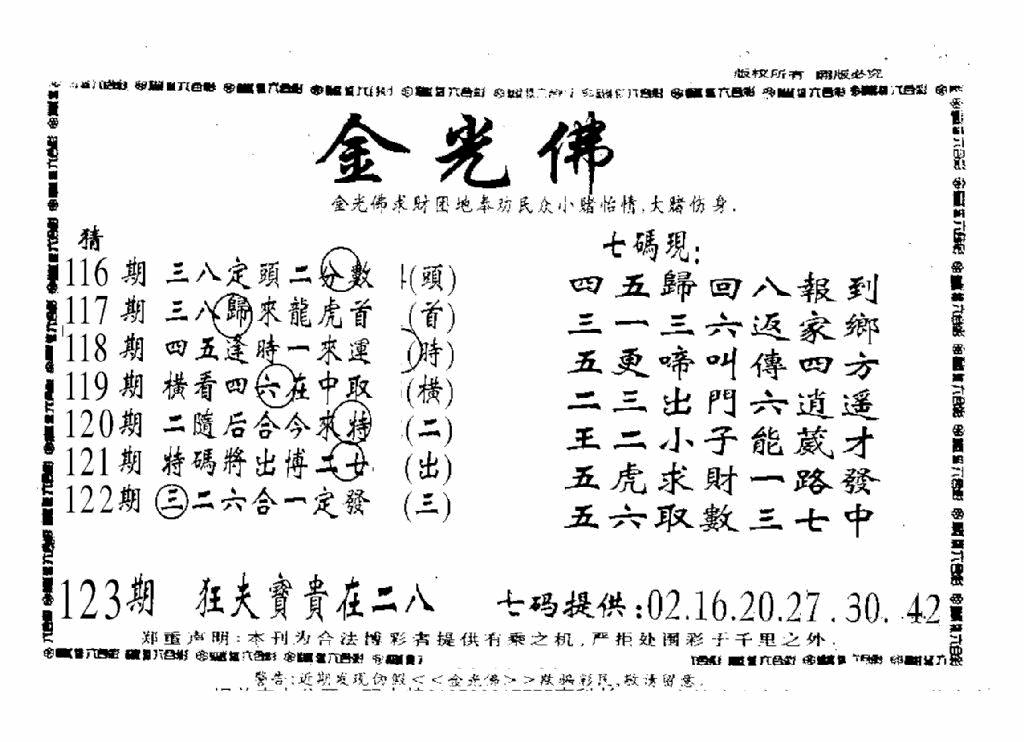 版权所有 翻版必究
金光佛
金光佛求財团地奉劝民众小赌怡情,大赌伤身.
猜
116期 三八定頭二分數 (頭)
117期 三八歸來龍虎首 (首)
118期 四五逢時一來運 (時)
119期 橫看四六在中取 (橫)
120期 二隨后合今來特 (二)
121期 特碼將出博二女 (出)
122期 三二六合一定發 (三)
七碼現:
四五歸回八報到
三一三六返家鄉
五更啼叫傳四方
二三出門六逍遥
王二小子能葳才
五虎求財一路發
五六取數三七中
123期 狂夫寶貴在二八 七码提供:02.16.20.27.30.42
郑重声明:本刊为合法博彩者提供有乘之机,严拒处围彩于千里之外.
警告:近期发现伪假<<金光佛>>欺骗彩民,敬请留意.